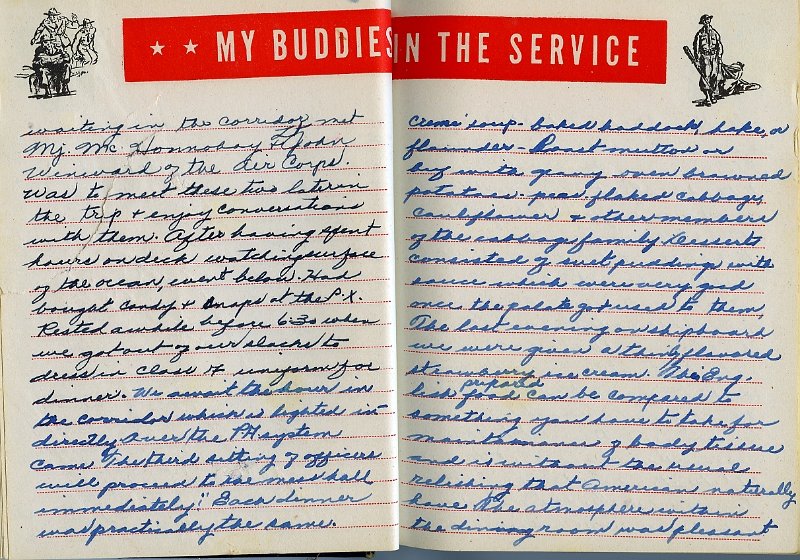 ★ ★ MY BUDDIES IN THE SERVICE
waiting in the corridor, met
Mj. Mc Honnohay & John
Wineward of the Air Corps.
Was to meet these two later in
the trip & enjoy conversations
with them. After having spent
hours on deck watching surface
of the ocean, went below. Had
bought candy & snaps at the P.X.
Rested awhile before 6:30 when
we got out of our slacks to
dress in class A uniform for
dinner. We await the hour in
the corridor which is lighted in-
directly. Over the PA system
came "The third setting of officers
will proceed to the mess hall
immediately." Each dinner
was practically the same.
Creme soup - baked haddock, hake, or
flounder - Roast mutton or
beef with gravy, oven browned
potatoes - peas, flaked cabbage,
cauliflower & other members
of the cabbage family. Desserts
consisted of suet pudding with
sauce which were very good
once the palate got used to them.
The last evening on shipboard
we were given a thinly flavored
strawberry ice cream. The Eng-
lish prepared food can be compared to
something you have to take for
maintainance of body tissue
and is without the usual
relishing that American naturally
have. The atmosphere within
the dining room was pleasant